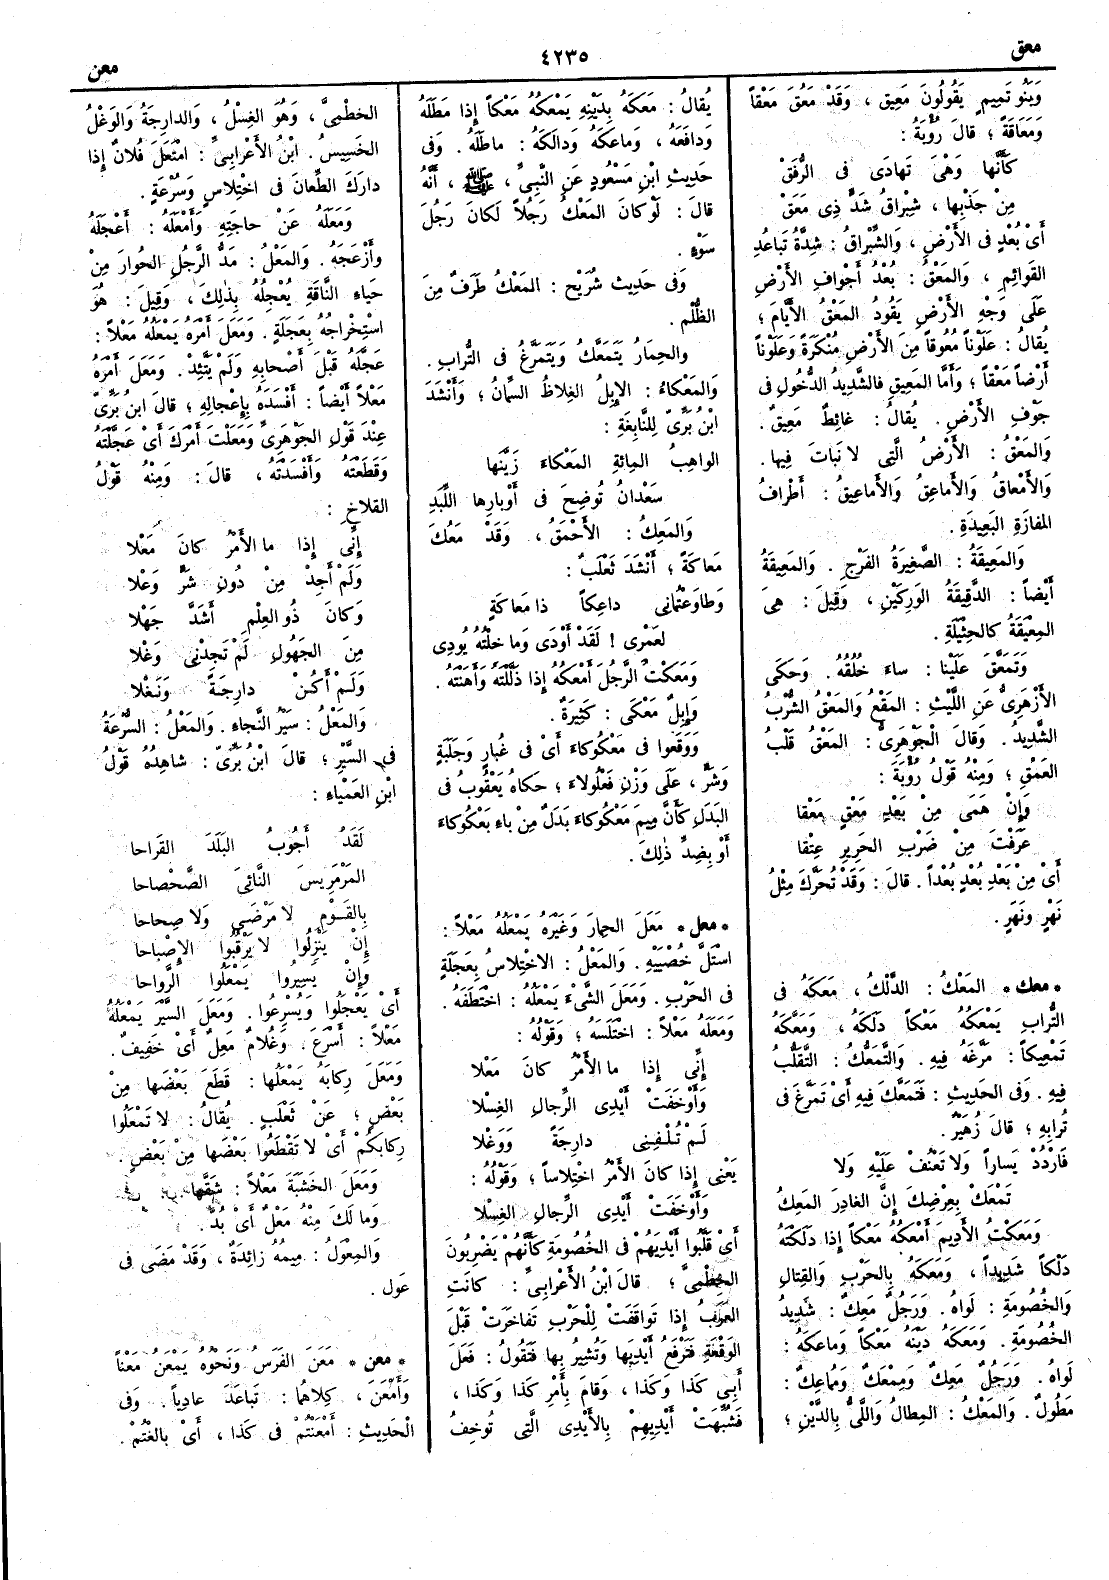 معق
٤٢٣٥
معن
وَبَنُو تَمِيمٍ يَقُولُونَ مَعِيق ، وَقَدْ مَعُقَ مَعْقاً
وَمَعَاقَةً ؛ قالَ رُؤْبَةُ :
كَأَنَّها وَهْىَ تَهادَى فى الرُّفَقْ
مِنْ جَذْبِها ، شِبْراقُ شَدٍّ ذِى مَعَقْ
أَىْ بُعْدٍ فى الأَرْضِ ، وَالشِّبْراقُ : شِدَّةُ تَباعُدِ
القَوائِمِ ، وَالمَعْقُ : بُعْدُ أَجْوافِ الأَرْضِ
عَلَى وَجْهِ الأَرْضِ يَقُودُ المَعْقُ الأَيَّامَ ؛
يُقالُ : عَلَوْنا مُعُوقاً مِنَ الأَرْضِ مُنْكَرَةً وَعَلَوْنا
أَرْضاً مَعْقاً ؛ وَأَمَّا المَعِيقِ فالشَّدِيدُ الدُّخُولِ فى
جَوْفِ الأَرْضِ . يُقالُ : غائِطٌ مَعِيقٌ .
وَالمَعْقُ : الأَرْضُ الَّتِى لا نَباتَ فِيها .
وَالأَمْعاقُ وَالأَماعِقُ وَالأَماعِيقُ : أَطْرافُ
المَفازَةِ البَعِيدَةِ .
وَالمَعِيقَةُ : الصَّغِيرَةُ الفَرْجِ . وَالمَعِيقَةُ
أَيْضاً : الدَّقِيقَةُ الوَرِكَيْنِ ، وَقِيلَ : هِىَ
المِعْيَقَةُ كالحِثْيَلَةِ .
وَتَمَعَّقَ عَلَيْنا : ساءَ خُلُقُهُ . وَحَكَى
الأَزْهَرِىُّ عَنِ اللَّيْثِ : المَقْعُ وَالمَعْقُ الشُّرْبُ
الشَّدِيدُ . وَقالَ الْجَوْهَرِىُّ : المَعْقُ قَلْبُ
العَمْقِ ؛ وَمِنْهُ قَوْلُ رُؤْبَةَ :
وَإِنْ هَمَى مِنْ بَعْدِ مَعْقٍ مَعْقا
عَرَفْتَ مِنْ ضَرْبِ الحَرِيرِ عِتْقا
أَىْ مِنْ بَعْدِ بُعْدٍ بُعْداً . قالَ : وَقَدْ تُحَرَّكَ مِثْلُ
نَهْرٍ وَنَهَرٍ .
* معك * المَعْكُ : الدَّلْكُ ، مَعَكَهُ فى
التُّرابِ يَمْعَكُهُ مَعْكاً دَلَكَهُ ، وَمَعَّكَهُ
تَمْعِيكاً : مَرَّغَهُ فِيهِ . وَالتَّمَعُّكُ : التَّقَلُّبُ
فِيهِ . وَفى الحَدِيثِ : فَتَمَعَّكَ فِيهِ أَىْ تَمَرَّغَ فى
تُرابِهِ ؛ قالَ زُهَيْرٌ .
فَارْدُدْ يَساراً وَلا تَعْنُفْ عَلَيْهِ وَلا
تَمْعَكْ بِعِرْضِكَ إِنَّ الغادِرَ المَعِكُ
وَمَعَكْتُ الأَدِيمَ أَمْعَكُهُ مَعْكاً إِذا دَلَكْتَهُ
دَلْكاً شَدِيداً ، وَمَعَكَهُ بِالحَرْبِ وَالقِتالِ
وَالخُصُومَةِ : لَواهُ . وَرَجُلٌ مَعِكٌ : شَدِيدُ
الخُصُومَةِ . وَمَعَكَهُ دَيْنَهُ مَعْكاً وَماعَكَهُ :
لَواهُ . وَرَجُلٌ مَعِكٌ وَمِمْعَكٌ وَمُماعِكٌ :
مَطُولٌ . وَالمَعْكُ : المِطالُ وَاللَّىُّ بِالدَّيْنِ ؛
يُقالُ : مَعَكَهُ بِدَيْنِهِ يَمْعَكُهُ مَعْكاً إِذا مَطَلَهُ
وَدافَعَهُ ، وَماعَكَهُ وَدالَكَهُ : ماطَلَهُ . وَفى
حَدِيثِ ابْنِ مَسْعُودٍ عَنِ النَّبِىِّ ، ﷺ ، أَنَّهُ
قالَ : لَوْ كانَ المَعْكُ رَجُلاً لَكانَ رَجُلَ
سَوْءٍ .
وَفى حَدِيث شُرَيْح : المَعْكُ طَرَفٌ مِنَ
الظُّلْمِ .
والحِمَارُ يَتَمَعَّكُ وَيَتَمَرَّغُ فى التُّرابِ .
وَالمَعْكاءُ : الإِبِلُ الغِلاظُ السِّمانُ ؛ وَأَنْشَدَ
ابْنُ بَرِّىّ لِلنَّابِغَةِ :
الواهِبُ المِائةِ المَعْكاءَ زَيَّنَها
سَعْدانُ تُوضِحَ فى أَوْبارِها اللِّبَدِ
وَالمَعِكُ : الأَحْمَقُ ، وَقَدْ مَعُكَ
مَعاكَةً ؛ أَنْشَدَ ثَعْلَبٌ :
وَطاوَعْتُمانِى داعِكاً ذا مَعاكَةٍ
لَعَمْرِى ! لَقَدْ أَوْدَى وَما خِلْتُهُ يُودِى
وَمَعَكْتُ الرَّجُلَ أَمْعَكُهُ إِذا ذَلَّلْتَهُ وَأَهَنْتَهُ .
وَإِبِلٌ مَعْكَى : كَثِيرَةٌ .
وَوَقَعُوا فى مَعْكُوكاءَ أَىْ فى غُبارٍ وَجَلَبَةٍ
وَشَرٍّ ، عَلَى وَزْنِ فَعْلُولاءَ ؛ حكاهُ يَعْقُوبُ فى
البَدَلِ كَأَنَّ مِيمَ مَعْكُوكاءَ بَدَلٌ مِنْ باءِ بَعْكُوكاءَ
أَوْ بِضِدِّ ذٰلِكَ .
* معل * مَعَلَ الحِمارَ وَغَيْرَهُ يَمْعَلُهُ مَعْلاً :
اسْتَلَّ خُصْيَيْهِ . وَالمَعْلُ : الاخْتِلاسُ بِعَجَلَةٍ
فى الحَرْبِ . وَمَعَلَ الشَّىْءَ يَمْعَلُهُ : اخْتَطَفَهُ .
وَمَعَلَهُ مَعْلاً : اخْتَلَسَهُ ؛ وَقَوْلُهُ :
إِنِّى إِذا ما الأَمْرُ كانَ مَعْلا
وَأَوْخَفَتْ أَيْدِى الرِّجالِ الغِسْلا
لَمْ تُلْفِنِى دارِجَةً وَوَغْلا
يَعْنِى إِذا كانَ الأَمْرُ اخْتِلاساً ؛ وَقَوْلُهُ :
وَأَوْخَفَتْ أَيْدِى الرِّجالِ الغِسْلا
أَىْ قَلَّبُوا أَيْدِيَهُمْ فى الخُصُومَةِ كَأَنَّهُمْ يَضْرِبُونَ
الخِطْمِىَّ ؛ قالَ ابْنُ الأَعْرابِىِّ : كانَتِ
العَرَبُ إِذا تَواقَفَتْ لِلْحَرْبِ تَفاخَرَتْ قَبْلَ
الوَقْعَةِ فَتَرْفَعُ أَيْدِيَها وَتُشِيرُ بِها فَتَقُولُ : فَعَلَ
أَبِى كَذا وَكَذا ، وَقامَ بِأَمْرِ كَذا وَكَذا ،
فَشُبِّهَتْ أَيْدِيهِمْ بِالأَيْدِى الَّتِى تُوخِفُ
الخَطْمِىَّ ، وَهُوَ الغِسْلُ ، وَالدارِجَةُ وَالوَغْلُ
الخَسِيسُ . ابْنُ الأَعْرابِىِّ : امْتَعَلَ فُلانٌ إِذا
دارَكَ الطِّعانَ فى اخْتِلاسٍ وَسُرْعَةٍ .
وَمَعَلَهُ عَنْ حاجَتِهِ وَأَمْعَلَهُ : أَعْجَلَهُ
وَأَزْعَجَهُ . وَالمَعْلُ : مَدُّ الرَّجُلِ الحُوارَ مِنْ
حَياءِ النَّاقَةِ يُعْجِلُهُ بِذٰلِكَ ، وَقِيلَ : هُوَ
اسْتِخْراجُهُ بِعَجَلَةٍ . وَمَعَلَ أَمْرَهُ يَمْعَلُهُ مَعْلاً :
عَجَّلَهُ قَبْلَ أَصْحابِهِ وَلَمْ يَتَّئِدْ . وَمَعَلَ أَمْرَهُ
مَعْلاً أَيْضاً : أَفْسَدَهُ بِإِعْجالِهِ ؛ قالَ ابنُ بَرِّىّ
عِنْدَ قَوْلِ الجَوْهَرِىِّ وَمَعَلْتَ أَمْرَكَ أَىْ عَجَّلْتَهُ
وَقَطَعْتَهُ وَأَفْسَدْتَهُ ، قالَ : وَمِنْهُ قَوْلُ
القلاخِ :
إِنِّى إِذا ما الأَمْرُ كانَ مَعْلا
وَلَمْ أَجِدْ مِنْ دُونِ شَرٍّ وَعْلا
وَكانَ ذُو العِلْمِ أَشَدَّ جَهْلا
مِنَ الجَهُولِ لَمْ تَجِدْنِى وَغْلا
وَلَمْ أَكُنْ دارِجَةً وَنَغْلا
وَالمَعْلُ : سَيْرُ النَّجاءِ . وَالمَعْلُ : السُّرْعَةُ
فى السَّيْرِ ؛ قالَ ابْنُ بَرِّىّ : شاهِدُهُ قَوْلُ
ابْنِ العَمْياءِ :
لَقَدْ أَجُوبُ البَلَدَ القَراحا
المَرْمَرِيسَ النَّائِىَ الصَّحْصاحا
بِالقَوْمِ لا مَرْضَى وَلا صِحاحا
إِنْ يَنْزِلُوا لا يَرْقُبُوا الإِصْباحا
وَإِنْ يَسِيرُوا يَمْعَلُوا الرَّواحا
أَىْ يَعْجَلُوا وَيُسْرِعُوا . وَمَعَلَ السَّيْرَ يَمْعَلُهُ
مَعْلاً : أَسْرَعَ . وَغُلامٌ مَعِلٌ أَىْ خَفِيفٌ .
وَمَعَلَ رِكابَهُ يَمْعَلُها : قَطَعَ بَعْضَها مِنْ
بَعْضٍ ؛ عَنْ ثَعْلَبٍ . يُقالُ : لا تَمْعَلُوا
رِكابَكُمْ أَىْ لا تَقْطَعُوا بَعْضَها مِنْ بَعْضٍ .
وَمَعَلَ الخَشَبَةَ مَعْلاً : شَقَّها .
وَما لَكَ مِنْهُ مَعْلٌ أَىْ بُدٌّ .
وَالمِعْوَلُ : مِيمُهُ زائِدَةٌ ، وَقَدْ مَضَى فى
عَول .
* معن * مَعَنَ الفَرَسُ وَنَحْوُهُ يَمْعَنُ مَعْناً
وَأَمْعَنَ ، كِلاهُما : تَباعَدَ عادِياً . وَفى
الْحَدِيثِ : أَمْعَنْتُمْ فى كَذا ، أَىْ بالَغْتُمْ .